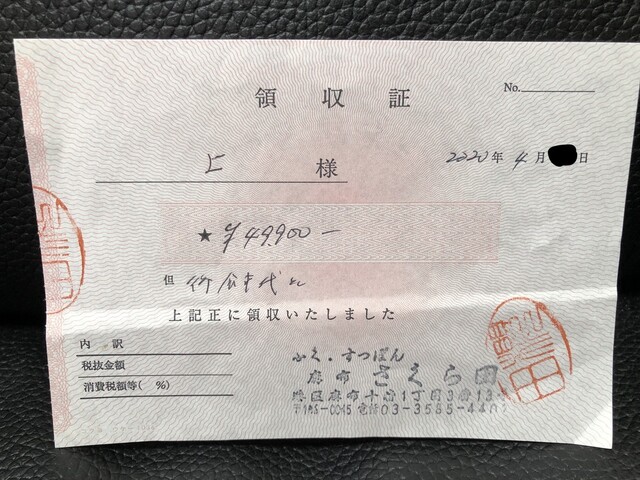 領収証
No.
2020年4月 日
上 様
★ ¥49,900-
但 御食事代
上記正に領収いたしました
内訳
税抜金額
消費税額等( %)
ふく・すっぽん
麻布 さくら田
港区麻布十番1丁目3番13
〒106-0045 電話03-3585-440